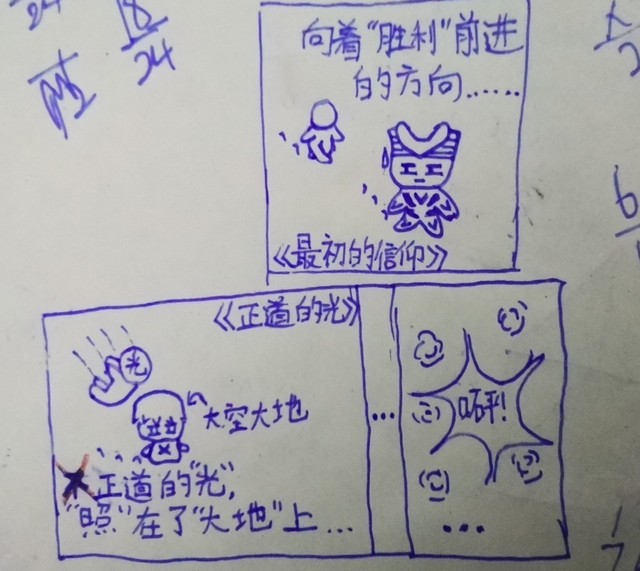 24
18
24
向着"胜利"前进
的方向……
《最初的信仰》
6
《正道的光》
光
大空大地
正道的"光",
"照"在了"大地"上…
…
砰!
…
1
7